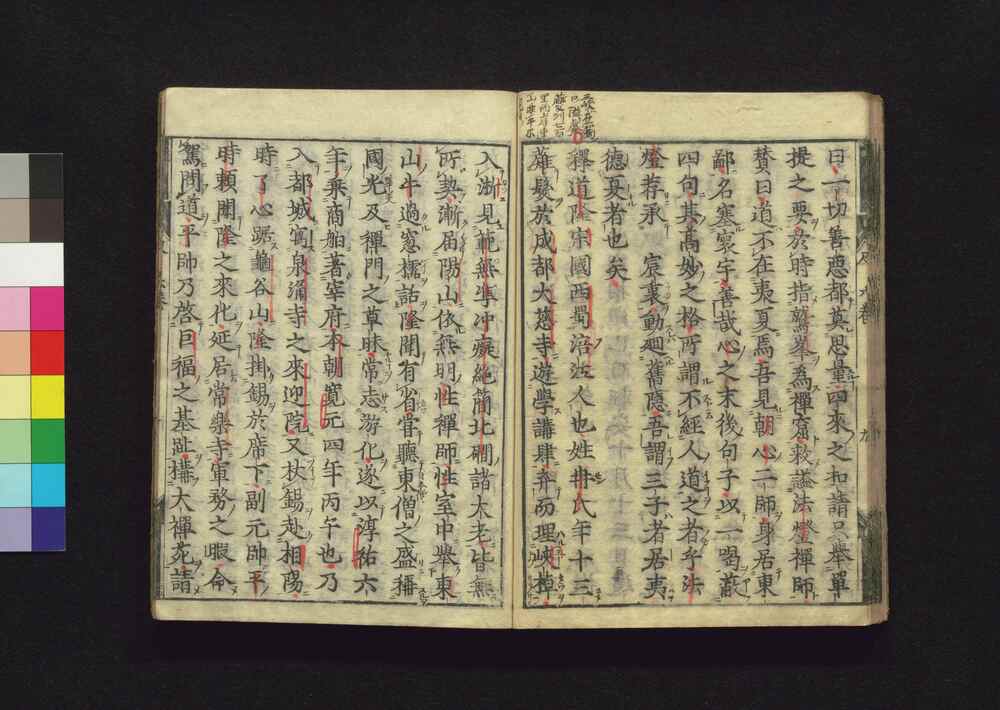 曰一切善惡都莫思量四來之和請只舉單
提之要於時指鷲峯為禪窟救謚法燈禪師
賛曰道不在夷夏焉吾見朝心二師身居東
鄙名塞寰宇善哉心之末後句子以一喝蔽
四句其高妙之格所謂不經人道之者乎法
燈荐承宸裏動廻舊隱吾謂三子者居夷
德夏者也矣
釋道隆宗國西蜀涪江人也姓冉氏年十三
薙髮於成都大慈寺遊學講肆弃而理峽棹
入浙見範無準冲癡絶簡北磵諸大老皆無
所契漸届陽山依無明性禪師性室中舉東
山牛過窓櫺話隆聞有省甞聽東僧之盛播
國光及禪門之草昧常志游化遂以淳祐六
年乗商舶著宰府本朝寛元四年丙午也乃
入都城寓泉涌寺之來迎院又杖錫赴相陽
時了心踞龜谷山隆掛錫於席下副元帥平
時頼聞隆之來化延居常樂寺軍務之暇命
駕問道平帥乃啓巨福之基趾搆大禪苑請